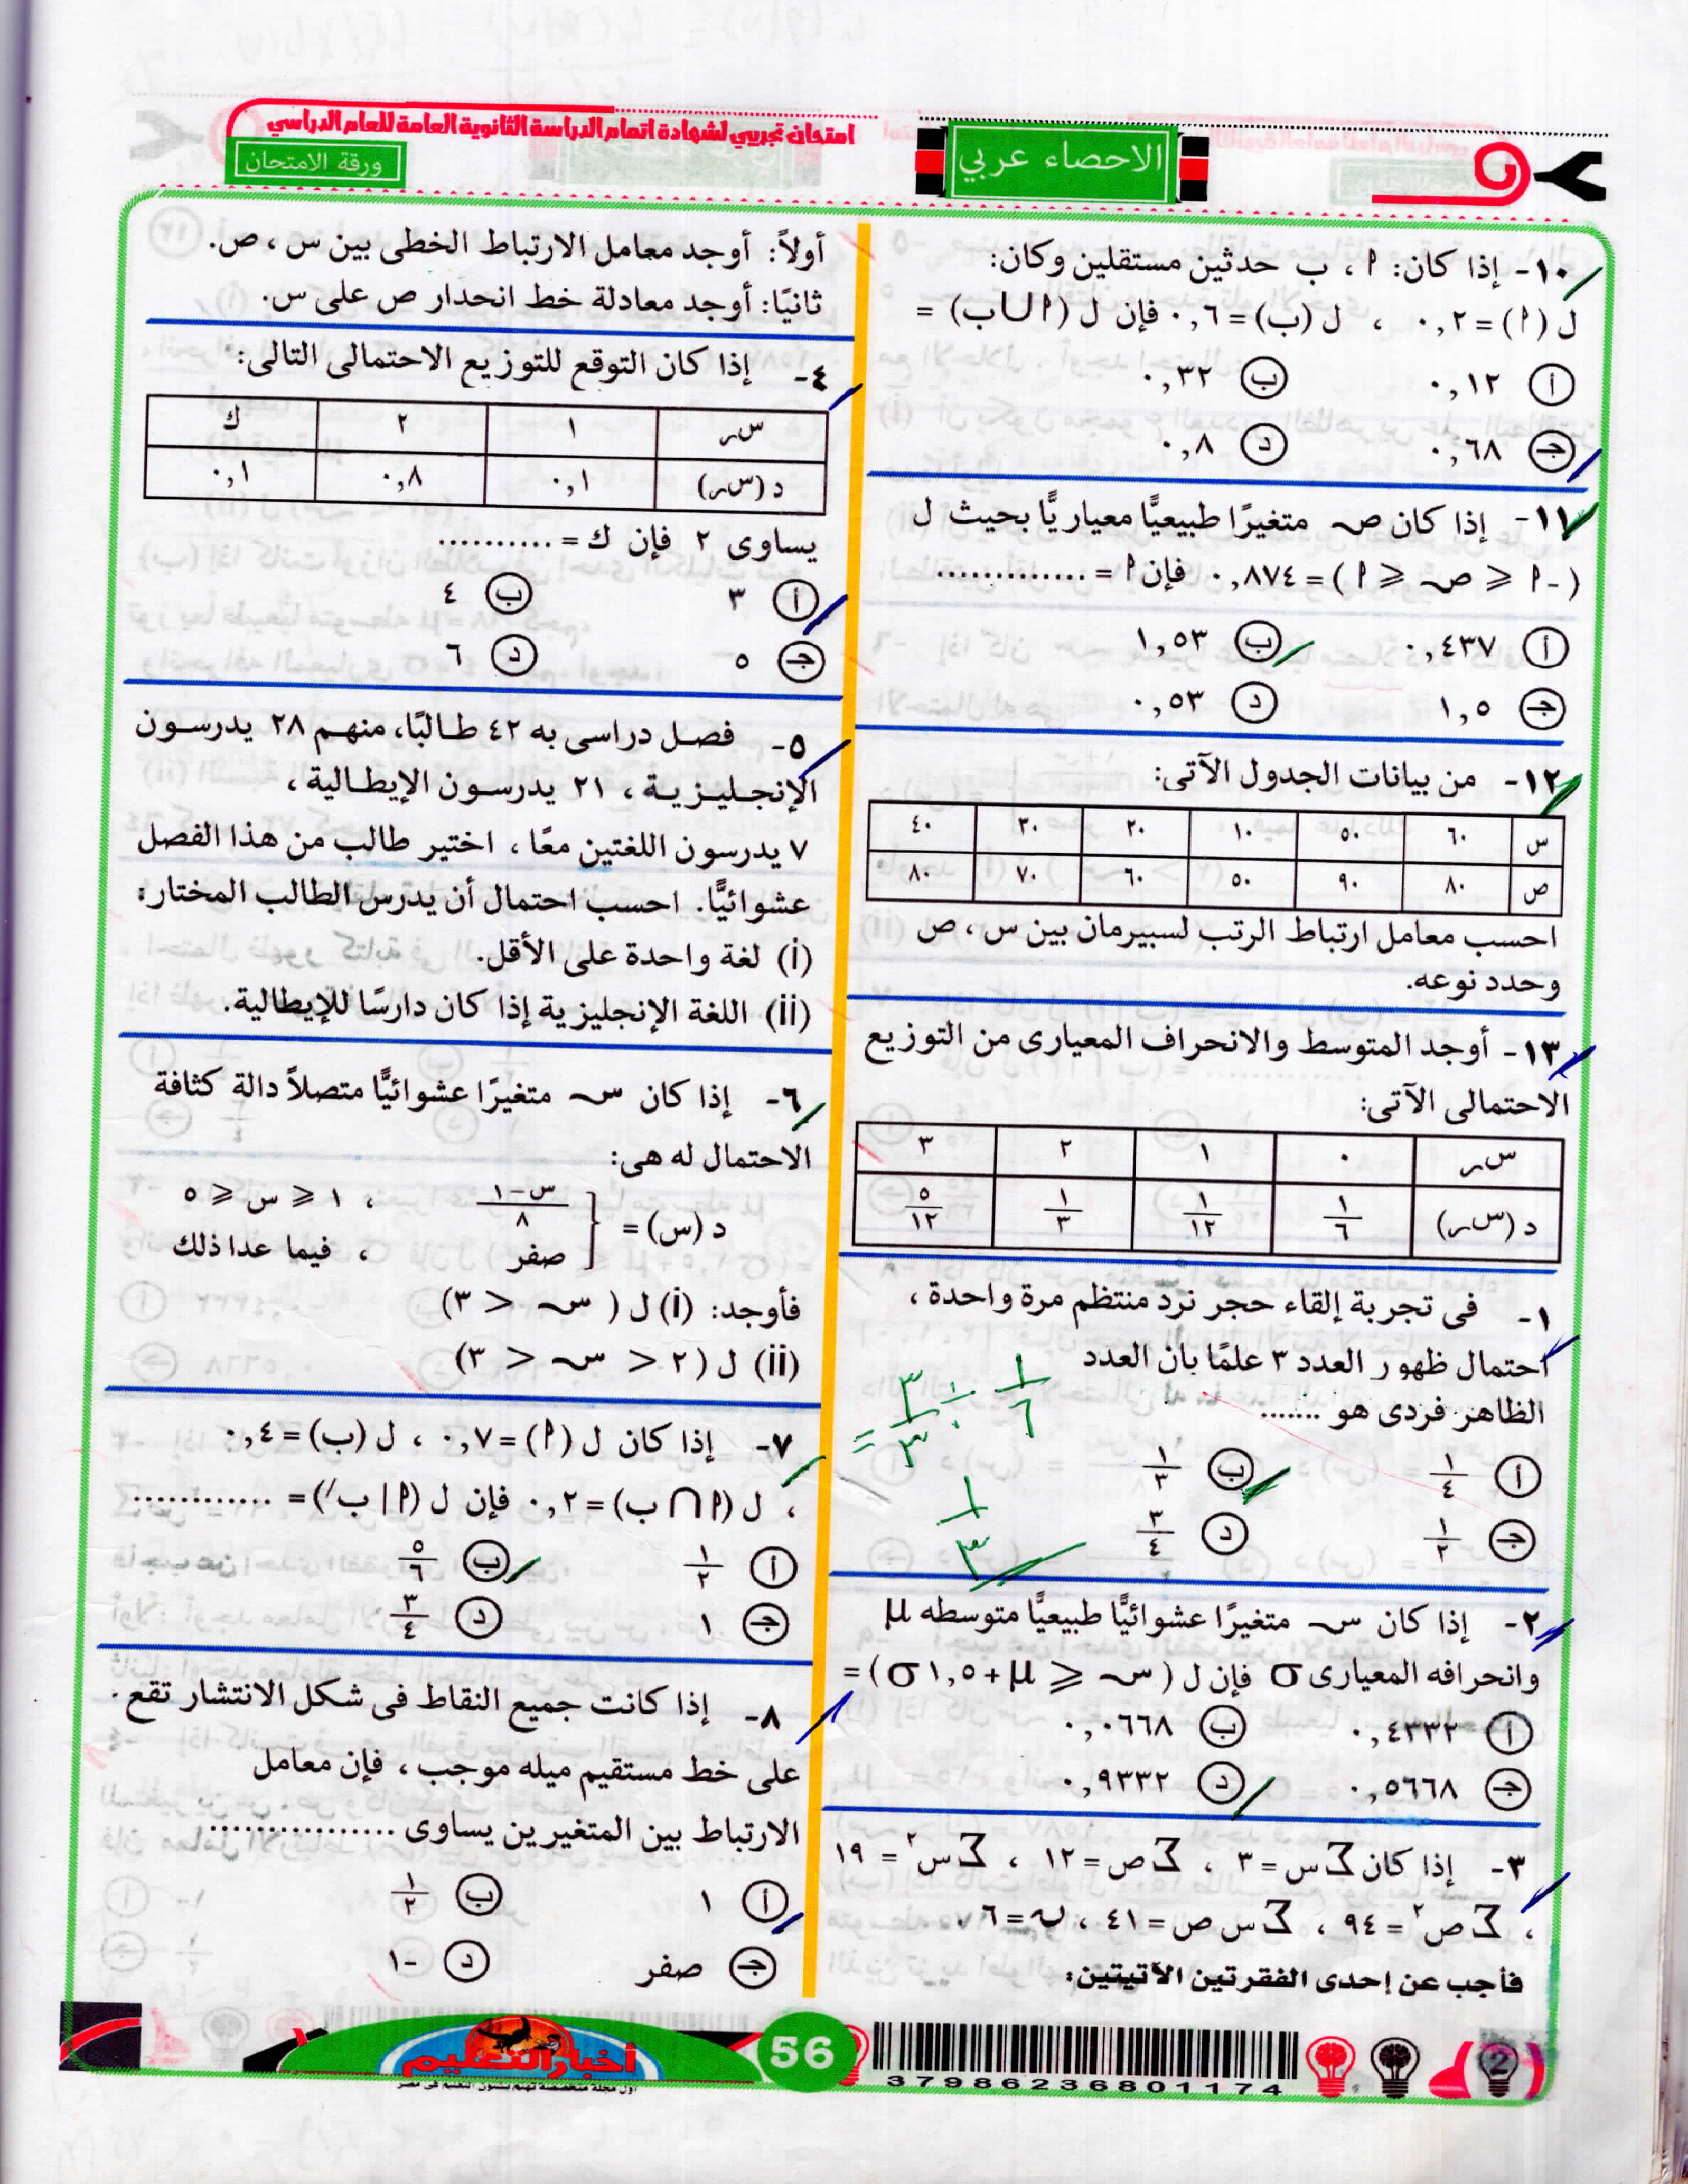 امتحان تجريبي لشهادة اتمام الدراسة الثانوية العامة للعام الدراسي
ورقة الامتحان
الاحصاء عربي
١٠- إذا كان: ٢ ، ب حدثين مستقلين وكان:
ل (٢) = ٠,٢ ، ل (ب) = ٠,٦ فإن ل (٢ ∪ ب) =
أ ٠,١٢ ب ٠,٣٢
جـ ٠,٦٨ د ٠,٨
١١- إذا كان ص متغيرًا طبيعيًّا معياريًّا بحيث ل
(-٢ ≤ ص ≤ ٢) = ٠,٨٧٤ فإن ٢ = .............
أ ٠,٤٣٧ ب ١,٥٣
جـ ١,٥ د ٠,٥٣
١٢- من بيانات الجدول الآتى:
س ٦٠ ٥٠ ١٠ ٢٠ ٣٠ ٤٠
ص ٨٠ ٩٠ ٥٠ ٦٠ ٧٠ ٨٠
احسب معامل ارتباط الرتب لسبيرمان بين س ، ص
وحدد نوعه.
١٣- أوجد المتوسط والانحراف المعيارى من التوزيع
الاحتمالى الآتى:
سر ٠ ١ ٢ ٣
د (سر) ١/٦ ١/١٢ ١/٣ ٥/١٢
١- فى تجربة إلقاء حجر نرد منتظم مرة واحدة ،
احتمال ظهور العدد ٣ علمًا بان العدد
الظاهر فردى هو .......
أ ١/٤ ب ١/٣
جـ ١/٢ د ٣/٤
١/٦ ÷
١/٣
٢- إذا كان س متغيرًا عشوائيًّا طبيعيًّا متوسطه μ
وانحرافه المعيارى σ فإن ل (س ≤ μ + ١,٥ σ) =
أ ٠,٤٣٣٢ ب ٠,٠٦٦٨
جـ ٠,٥٦٦٨ د ٠,٩٣٣٢
٣- إذا كان ∑س = ٣ ، ∑ص = ١٢ ، ∑س٢ = ١٩
، ∑ص٢ = ٩٤ ، ∑س ص = ٤١ ، ن = ٦ .
فأجب عن إحدى الفقرتين الآتيتين:
أولاً: أوجد معامل الارتباط الخطى بين س ، ص.
ثانيًا: أوجد معادلة خط انحدار ص على س.
٤- إذا كان التوقع للتوزيع الاحتمالى التالى:
سر ١ ٢ ك
د (سر) ٠,١ ٠,٨ ٠,١
يساوى ٢ فإن ك = ..........
أ ٣ ب ٤
جـ ٥ د ٦
٥- فصل دراسى به ٤٢ طالبًا، منهم ٢٨ يدرسون
الإنجليزية ، ٢١ يدرسون الإيطالية ،
٧ يدرسون اللغتين معًا ، اختير طالب من هذا الفصل
عشوائيًّا. احسب احتمال أن يدرس الطالب المختار:
(i) لغة واحدة على الأقل.
(ii) اللغة الإنجليزية إذا كان دارسًا للإيطالية.
٦- إذا كان س متغيرًا عشوائيًّا متصلاً دالة كثافة
الاحتمال له هى:
د (س) = { (س-١)/٨ ، ١ ≤ س ≤ ٥
صفر ، فيما عدا ذلك
فأوجد: (i) ل (س < ٣)
(ii) ل (٢ < س < ٣)
٧- إذا كان ل (٢) = ٠,٧ ، ل (ب) = ٠,٤
، ل (٢ ∩ ب) = ٠,٢ فإن ل (٢ | بَ) = ............
أ ١/٢ ب ٥/٦
جـ ١ د ٣/٤
٨- إذا كانت جميع النقاط فى شكل الانتشار تقع .
على خط مستقيم ميله موجب ، فإن معامل
الارتباط بين المتغيرين يساوى ................
أ ١ ب ١/٢
جـ صفر د -١
أخبار التعليم
أول مجلة متخصصة تهتم بشئون التعليم فى مصر
56
37986236801174
2